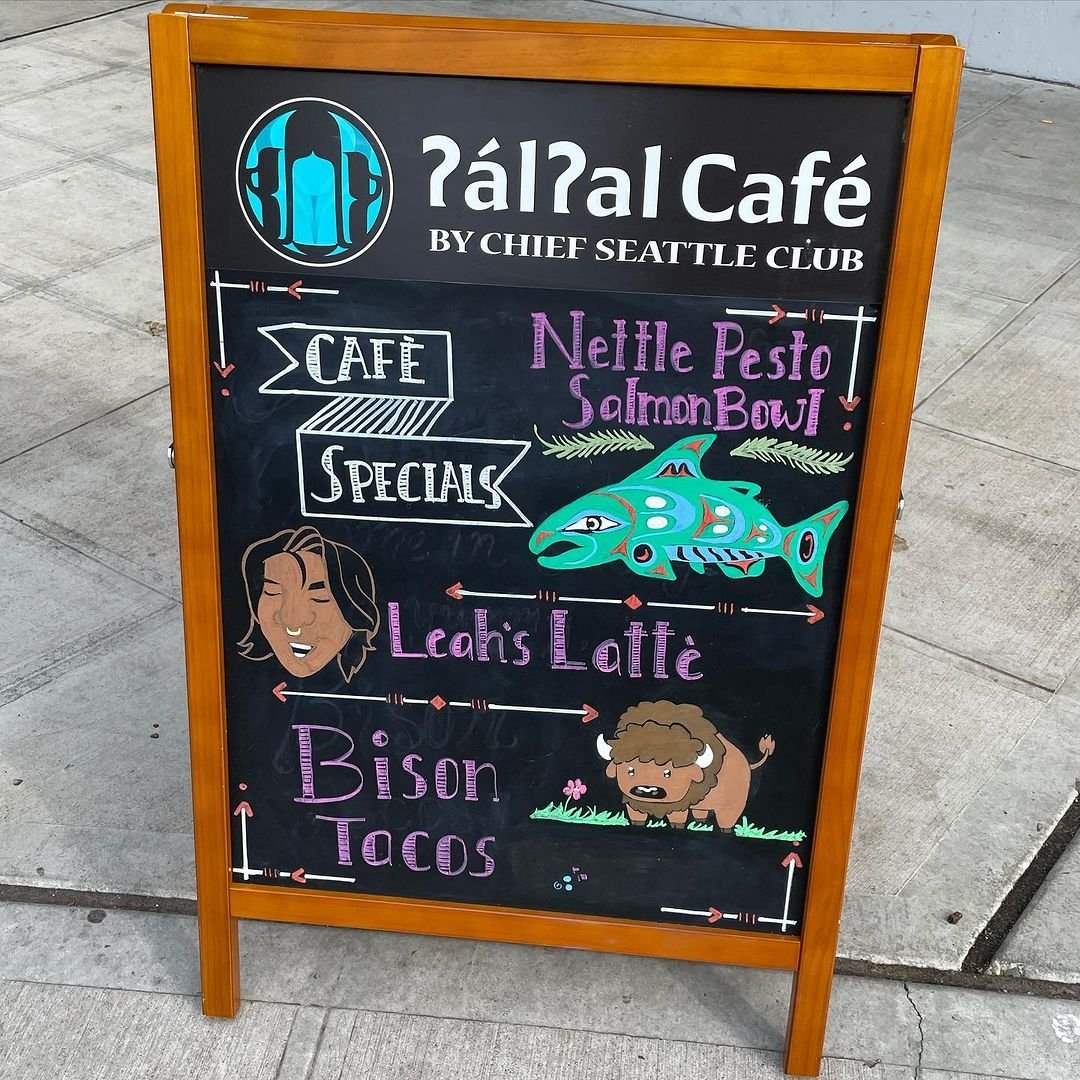 ʔálʔal Café
BY CHIEF SEATTLE CLUB
CAFÈ
SPECIALS
Nettle Pesto
Salmon Bowl
Leah's Lattè
Bison
Tacos